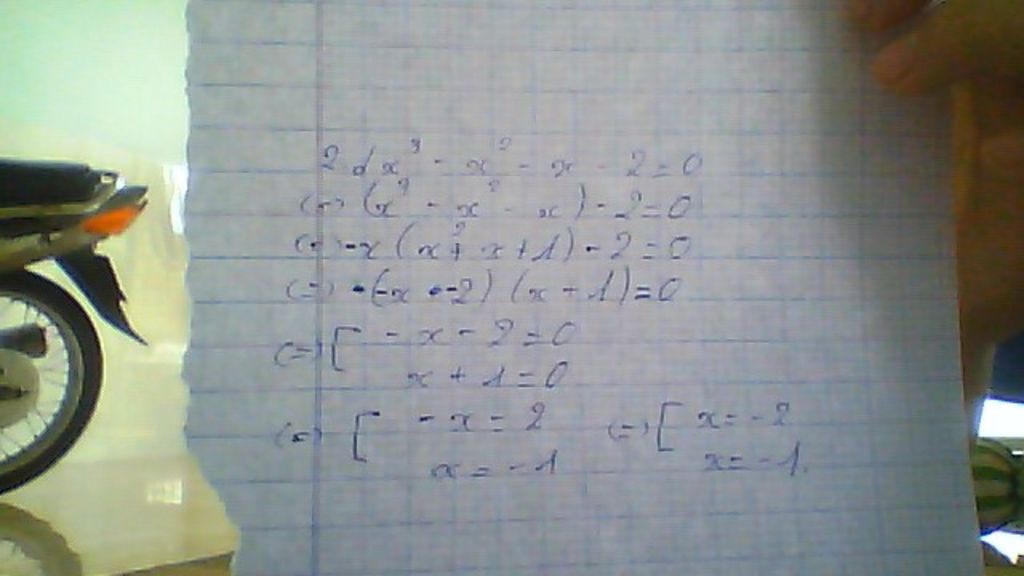 2 d x³ - x² - x - 2 = 0
(=) (x³ - x² - x) - 2 = 0
(=) -x (x² + x + 1) - 2 = 0
(=) - (-x - -2) (x - 1) = 0
(=) [ - x - 2 = 0
x + 1 = 0
(=) [ - x = 2 (=) [ x = - 2
x = - 1 x = - 1.